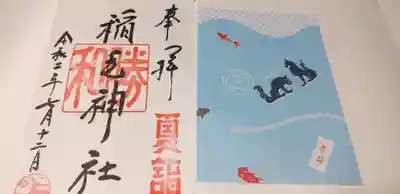 奉拝
夏詣
稲毛神社
勝
和
令和二年七月十二日